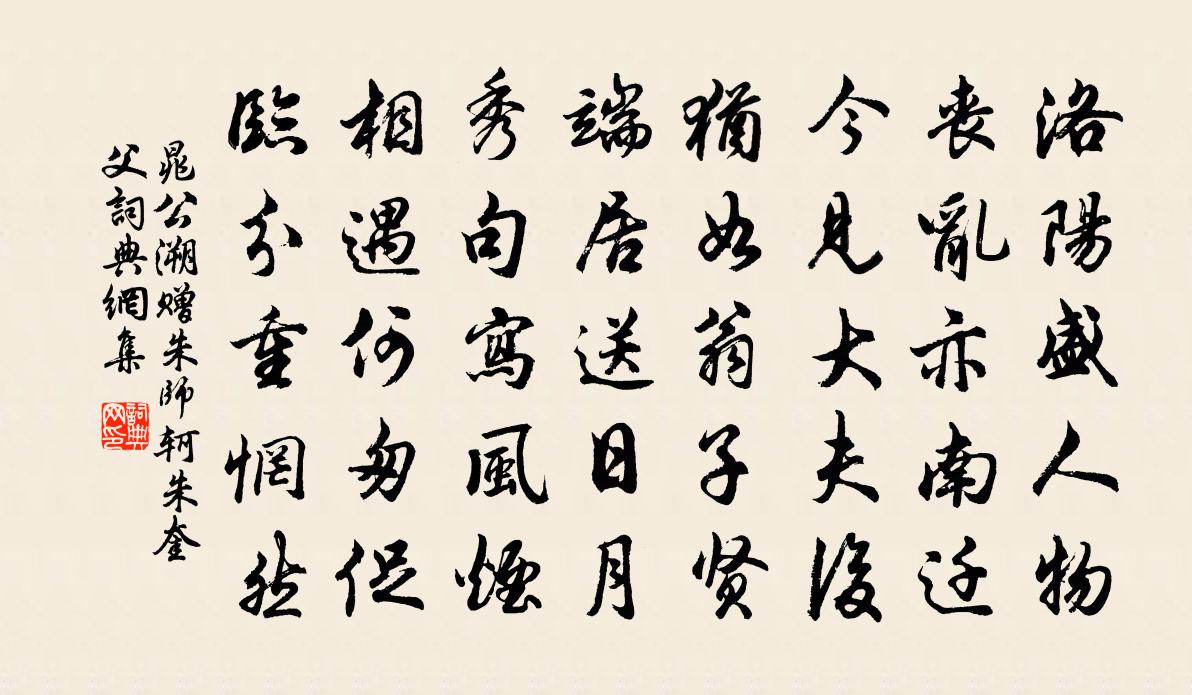 洛陽盛人物
喪亂亦南迁
今見大夫後
猶如翁子賢
端居送日月
秀句寫風煙
相遇何匆促
臨分重惘然
晁公溯赠朱師轲朱奎
父詞典網集
詞典网印